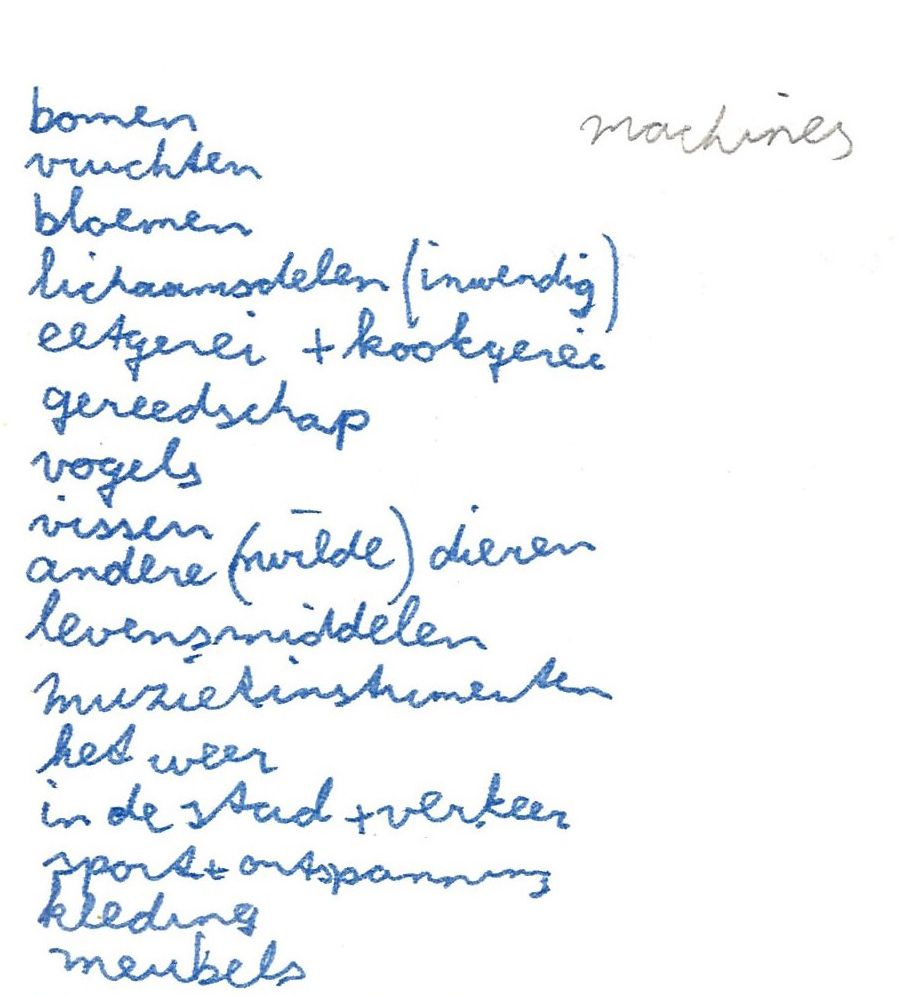 bomen
machines
vruchten
bloemen
lichaamsdelen (inwendig)
eetgerei + kookgerei
gereedschap
vogels
vissen
andere (wilde) dieren
levensmiddelen
muziekinstrumenten
het weer
in de stad + verkeer
sport + ontspanning
kleding
meubels